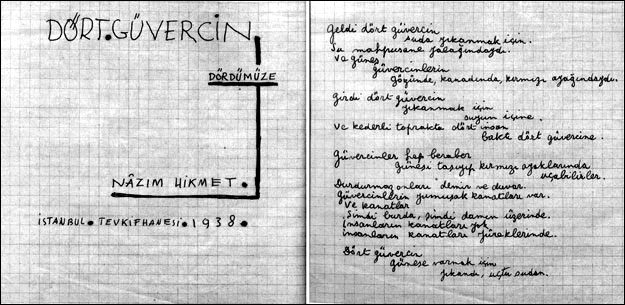 DÖRT.GÜVERCİN
DÖRDÜMÜZE
NÂZIM HİKMET.
İSTANBUL. TEVKİFHANESİ. 1938.
Geldi dört güvercin
suda yıkanmak için.
Su mahpusane yalağındaydı.
Ve güneş
güvercinlerin
gözünde, kanadında, kırmızı ayağındaydı.
Girdi dört güvercin
yıkanmak için
suyun içine.
Ve kederli toprakta dört insan
baktı dört güvercine.
Güvercinler hep beraber
Güneşi taşıyıp kırmızı ayaklarında
uçabilirler.
Durdurmaz onları demir ve duvar.
Güvercinlerin yumuşak kanatları var.
Ve kanatlar
Şimdi burda, şimdi damın üzerinde.
İnsanların kanatları yok
İnsanların kanatları yüreklerinde.
Dört güvercin
güneşe varmak için
yıkandı, uçtu sudan.